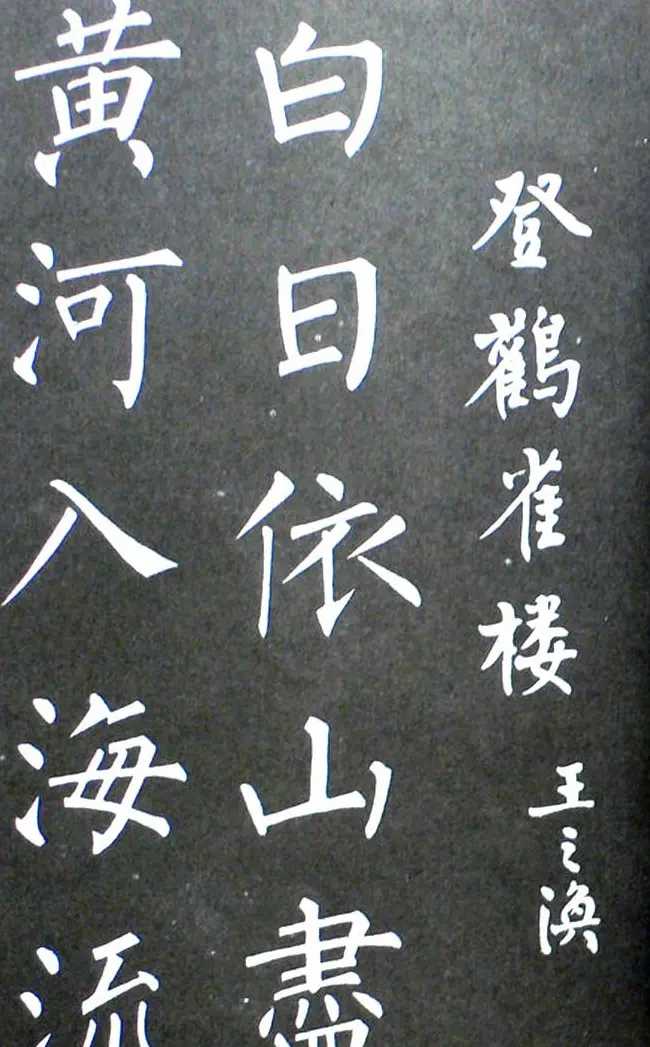 登鸛雀楼
王之渙
白日依山盡
黄河入海流